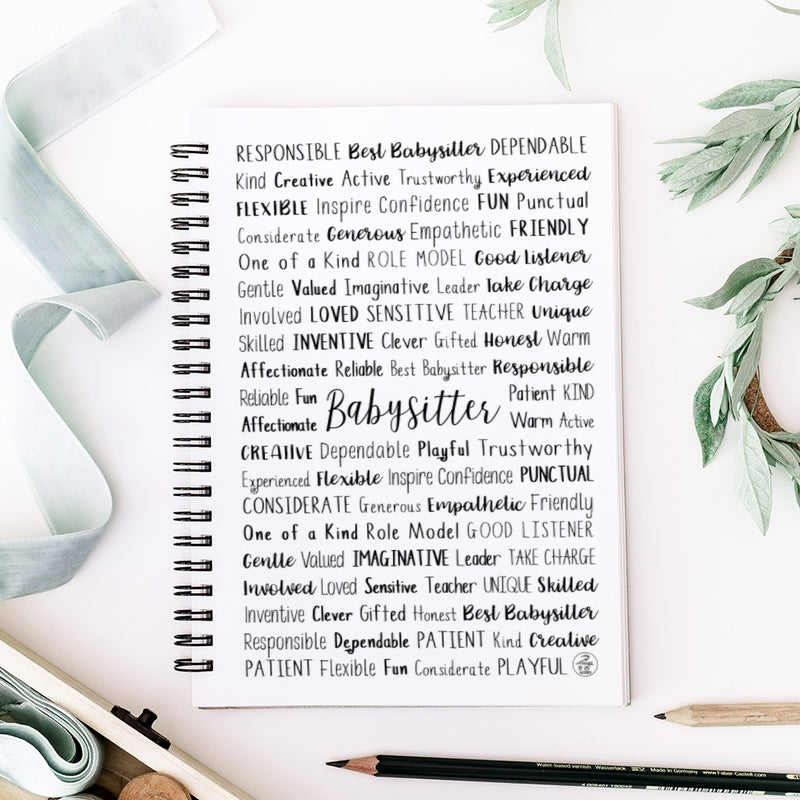 RESPONSIBLE Best Babysitter DEPENDABLE
Kind Creative Active Trustworthy Experienced
FLEXIBLE Inspire Confidence FUN Punctual
Considerate Generous Empathetic FRIENDLY
One of a Kind ROLE MODEL Good Listener
Gentle Valued Imaginative Leader Take Charge
Involved LOVED SENSITIVE TEACHER Unique
Skilled INVENTIVE Clever Gifted Honest Warm
Affectionate Reliable Best Babysitter Responsible
Reliable Fun
Affectionate
Babysitter
Patient KIND
Warm Active
CREATIVE Dependable Playful Trustworthy
Experienced Flexible Inspire Confidence PUNCTUAL
CONSIDERATE Generous Empathetic Friendly
One of a Kind Role Model GOOD LISTENER
Gentle Valued IMAGINATIVE Leader TAKE CHARGE
Involved Loved Sensitive Teacher UNIQUE Skilled
Inventive Clever Gifted Honest Best Babysitter
Responsible Dependable PATIENT Kind Creative
PATIENT Flexible Fun Considerate PLAYFUL
Water-based varnish Wasserlack Made in Germany www.Faber-Castell.com